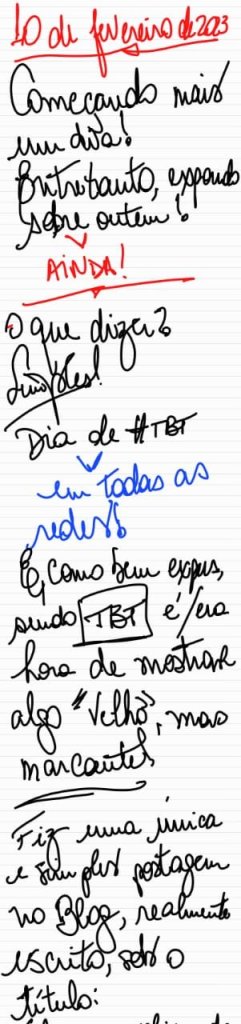 10 de fevereiro de 2023
Começando mais
um dia!
Entretanto, expondo
sobre ontem!
AINDA!
O que dizer?
Simples!
Dia de #TBT
em todas as
redes!
E, como bem expus,
sendo TBT é/era
hora de mostrar
algo "Velho", mas
marcante!
Fiz uma única
e simples postagem
no Blog, realmente
escrito, sob o
título: